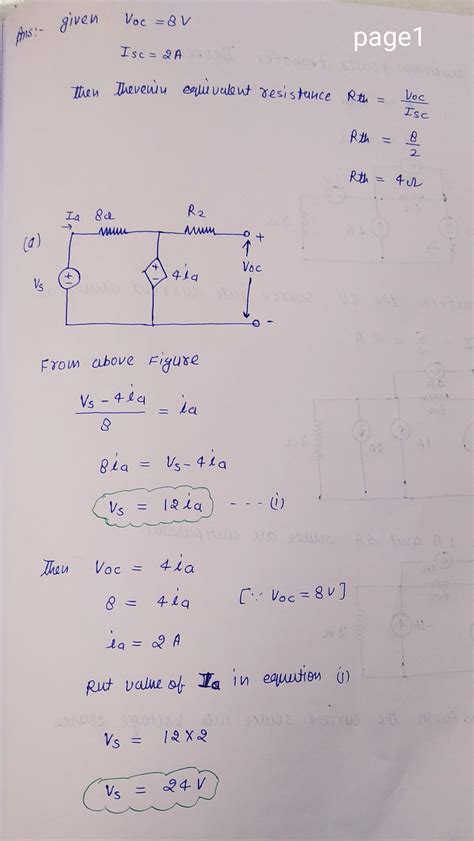 page1
Ans:- given Voc = 8V
Isc = 2A
Then Thevenin equivalent resistance Rth = Voc/Isc
Rth = 8/2
Rth = 4Ω
(a)
Ia 8Ω R2
Vs 4ia Voc
+ -
From above Figure
Vs - 4ia / 8 = ia
8ia = Vs - 4ia
Vs = 12ia --- (i)
Then Voc = 4ia
8 = 4ia [∵ Voc = 8V]
ia = 2A
Put value of Ia in equation (i)
Vs = 12×2
Vs = 24V